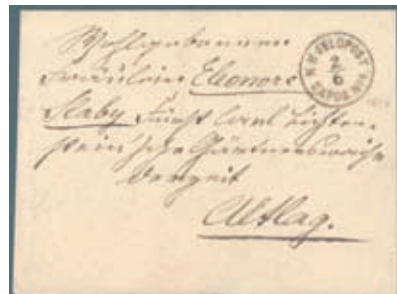 Wohlgeboren
Fräulein Eleonore
Slaby Fürst Carl Lichten-
stein'sche Gärtnerswaise
derzeit
Altlag.
K.K. FELDPOST
2/6
EXPOS. No